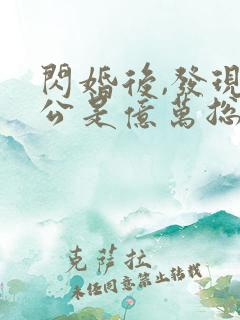 閃婚後,發現
公是億萬總
克薩拉
未經同意禁止轉載